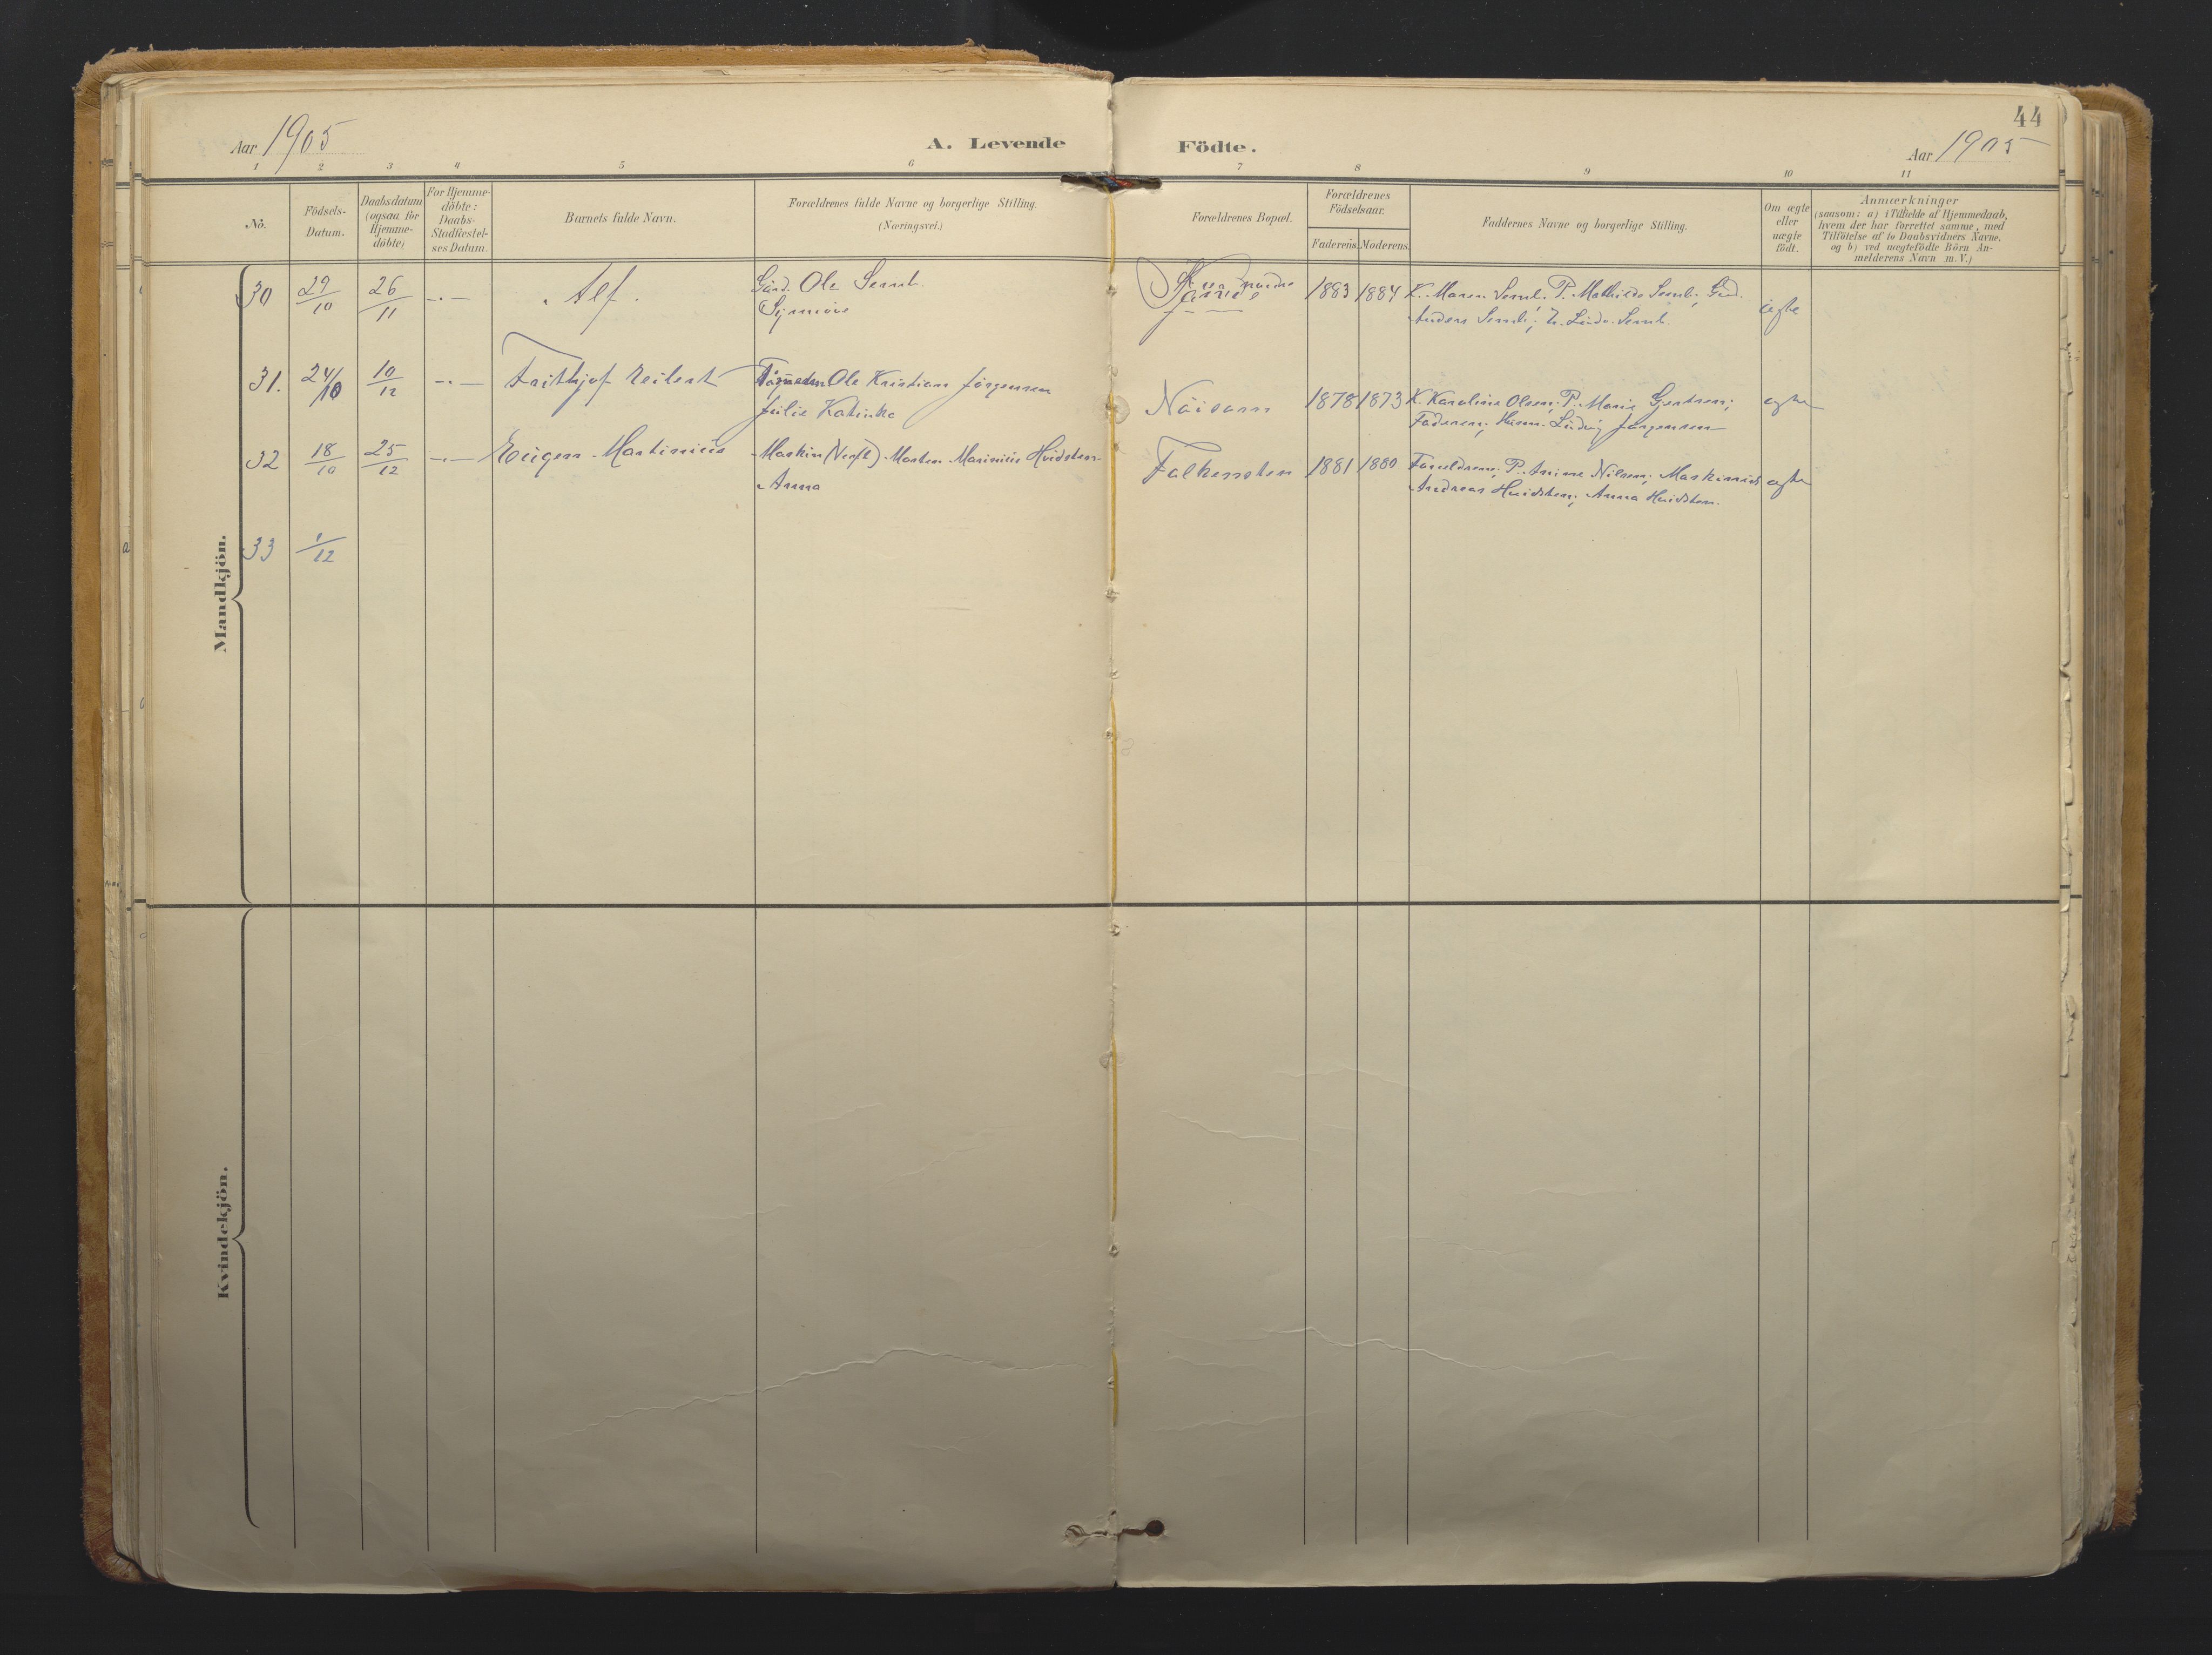 44
Aar 1905
A. Levende Födte.
Aar 1905
1 2 3 4 5 6 7 8 9 10 11
No.
Födsels-
Datum.
Daabsdatum
(ogsaa for
Hjemme-
döbte)
For Hjemme-
döbte:
Daabs-
Stadfæstel-
ses Datum.
Barnets fulde Navn.
Forældrenes fulde Navne og borgerlige Stilling.
(Næringsvei.)
Forældrenes Bopæl.
Forældrenes
Födselsaar.
Faderens. Moderens.
Faddernes Navne og borgerlige Stilling.
Om ægte
eller
uægte
födt.
Anmærkninger
(saasom: a) i Tilfælde af Hjemmedaab,
hvem der har forrettet samme, med
Tilföielse af to Daabsvidners Navne.
og b) ved uægtefödte Börn An-
melderens Navn m. V.)
Mandkjön.
30 29/10 26/11 -"- Alf. Gård. Ole Semb. 1883 1884 K. Maren Semb; P. Mathilde Semb; Gård.
Synnöve Anders Semb; Semb. ægte
31. 24/10 10/12 -"- Frithjof Eilert Ole Kristian Jörgensen
Julie Katinka Nöisom 1878 1873 K. Karoline Olsen; P. Marie Gjertsen; ægte
Faderen; Ludvig Jörgensen
32 18/10 25/12 -"- Eugen Martinius Maskin Morten Marinius Hvidsten
Anna Falkensten 1881 1880 Forældrene; P. Anine Nilsen; Maskinist ægte
Andreas Hvidsten; Anna Hvidsten.
33 1/12
Kvindekjön.